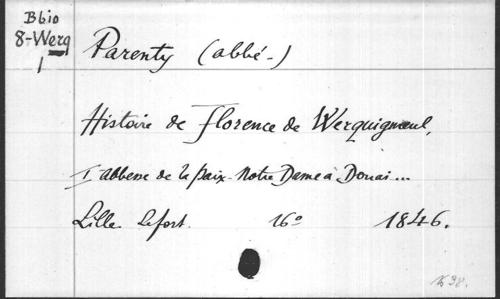 Bbio
8-Werq
1
Parenty (abbé-)
Histoire de Florence de Werquigneul,
I abbesse de la paix-Notre Dame à Douai...
Lille Lefort. 16° 1846.